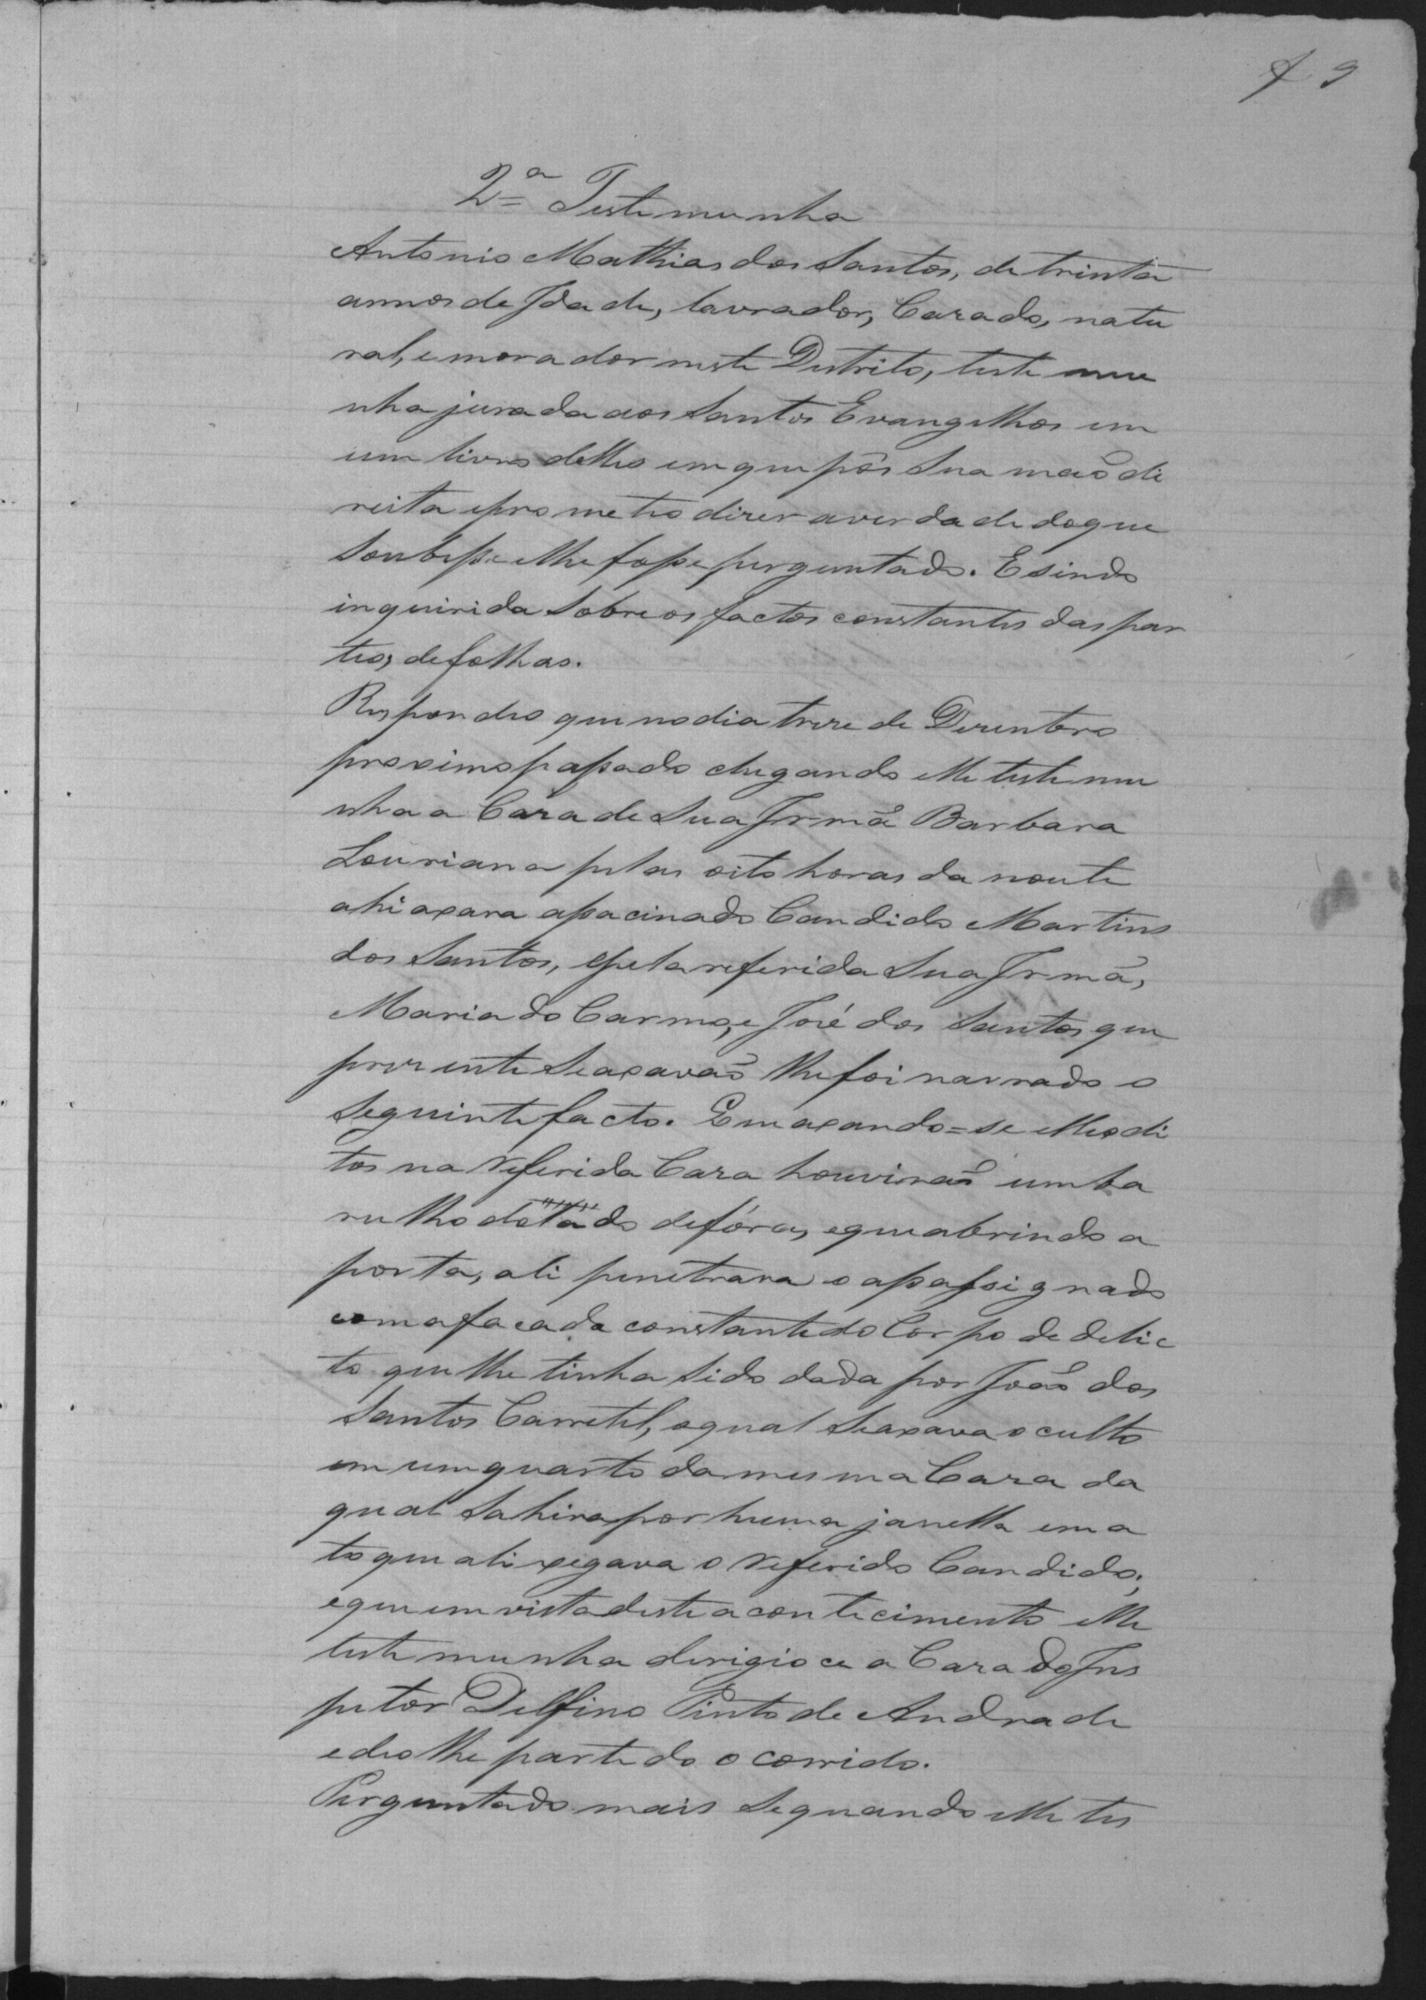 f 9
2ª Testemunha
Antonio Mathias dos Santos, de trinta
annos de Idade, lavrador, Cazado, natu
ral, e morador neste Destrito, teste mu
nha jurada aos Santos Evangelhos em
um livro delles em que pôs Sua mão di
reita e pro metio dizer a verdade do que
Soubesse e lhe fosse perguntado. E sindo
inquirida Sobre os factos constantes das par
tes, de folhas.
Respondeo que no dia treze de Dezenbro
proximo passado chegando elle teste mu
nha a Caza de Sua Irmã Barbara
Louriana pelas oito horas da noute
ahi axara assacinado Candido Martins
dos Santos, e pela referida Sua Irmã,
Maria do Carmo, e José dos Santos que
prezente Se axavaõ lhe foi narrado o
Seguinte facto. Em axando=se elles di
tos na referida Caza houviraõ um ba
rulho do lado de fóra, e que abrindo a
porta, ali penetrara o assassignado
com a facada constante do Corpo de delic
to que lhe tinha Sido dada por João dos
Santos Carretel, o qual Se axava oculto
em um quarto da mesma Caza da
qual Sahira por huma janella em a
to que ali xegava o referido Candido;
e que em vista deste acontecimento elle
teste munha derigio ce a Caza do Ins
petor Delfino Pinto de Andrade
e deo lhe parte do o corrido.
Perguntado mais Se quando elle tes